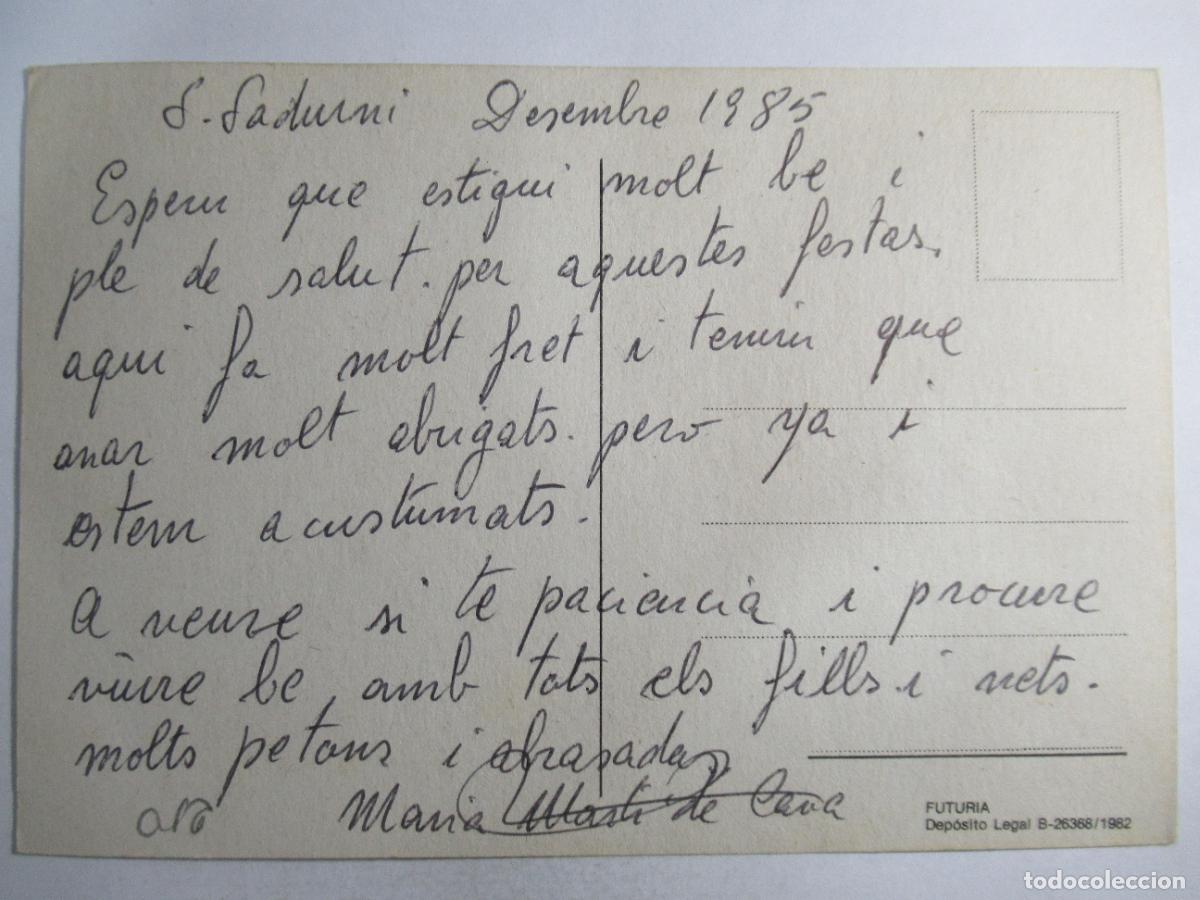 S. Sadurni Desembre 1985
Esperu que estigui molt be i
ple de salut. per aquestes festas.
aqui fa molt fret i tenim que
anar molt abrigats. pero ya i
estem acustumats.
A veure si te paciencia i procure
viure be amb tots els fills i nets.
molts petons i abrasadas
Maria Marti de Cava
FUTURIA
Depósito Legal B-26368/1982
todocoleccion